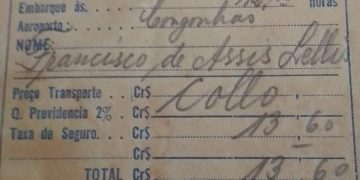 Embarque às. horas
Aeroporto: Congonhas
NOME:
Francisco de Assis Lellis
Preço Transporte . Cr$ Collo
Q. Previdencia 2% . Cr$ 13,60
Taxa de Seguro. . . Cr$
Cr$
TOTAL Cr$ 13,60